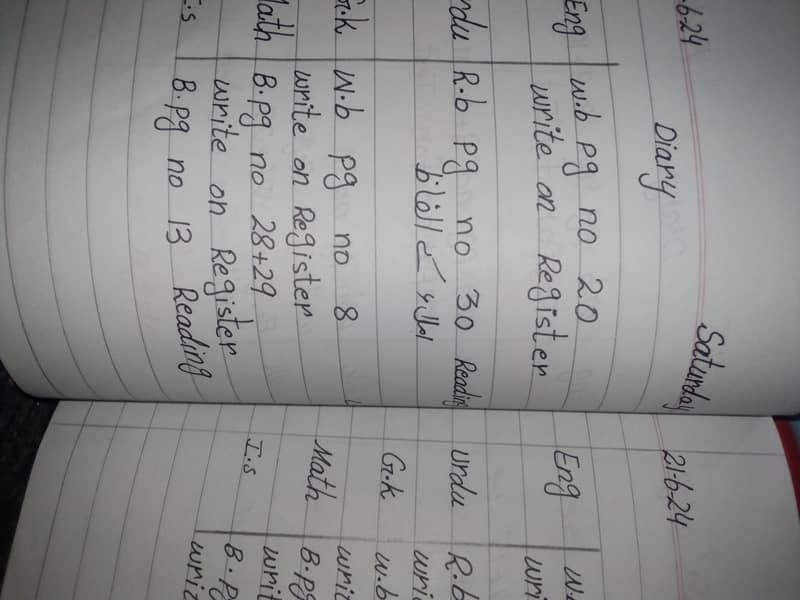 6-24 Saturday
Diary
Eng W.b pg no 20
write on Register
rdu R.b pg no 30 Reading
املاء کے الفاظ
G.k W.b pg no 8
write on Register
Math B.pg no 28+29
write on Register
I.s B.pg no 13 Reading
21-6-24
Eng W.
wri
Urdu R.b
wri
G.k W.b
writ
Math B.pg
writ
I.s B.pg
writ